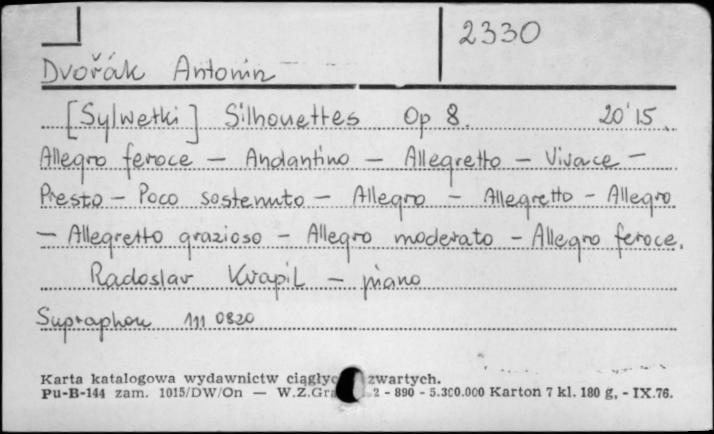 2330
Dvořák Antonin
[Sylwetki] Silhouettes Op 8. 20'15
Allegro feroce – Andantino – Allegretto – Vivace –
Presto – Poco sostenuto – Allegro – Allegretto – Allegro
– Allegretto grazioso – Allegro moderato – Allegro feroce.
Radoslav Kvapil – piano
Supraphon 111 0820
Karta katalogowa wydawnictw zwartych.
Pu-B-144 zam. 1015/DW/On — 2 - 890 - 5.300.000 Karton 7 kl. 180 g, - IX.76.